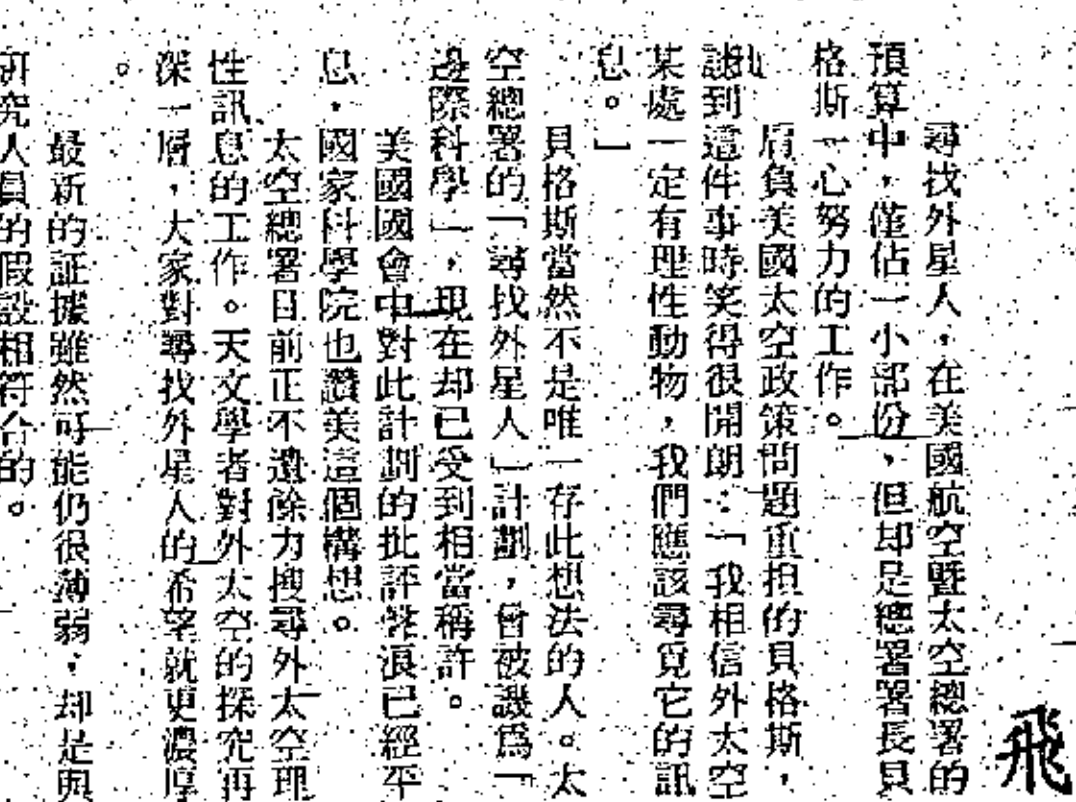 飛
尋找外星人,在美國航空暨太空總署的
預算中,僅佔一小部份,但却是總署署長貝
格斯一心努力的工作。
肩負美國太空政策問題重担的貝格斯,
談到這件事時笑得很開朗:「我相信外太空
某處一定有理性動物,我們應該尋覓它的訊
息。」
貝格斯當然不是唯一存此想法的人。太
空總署的「尋找外星人」計劃,曾被譏爲「
邊際科學」,現在却已受到相當稱許。
美國國會中對此計劃的批評聲浪已經平
息,國家科學院也讚美這個構想。
太空總署目前正不遺餘力搜尋外太空理
性訊息的工作。天文學者對外太空的探究再
深一層,大家對尋找外星人的希望就更濃厚
。
最新的証據雖然可能仍很薄弱,却是與
研究人員的假設相符合的。